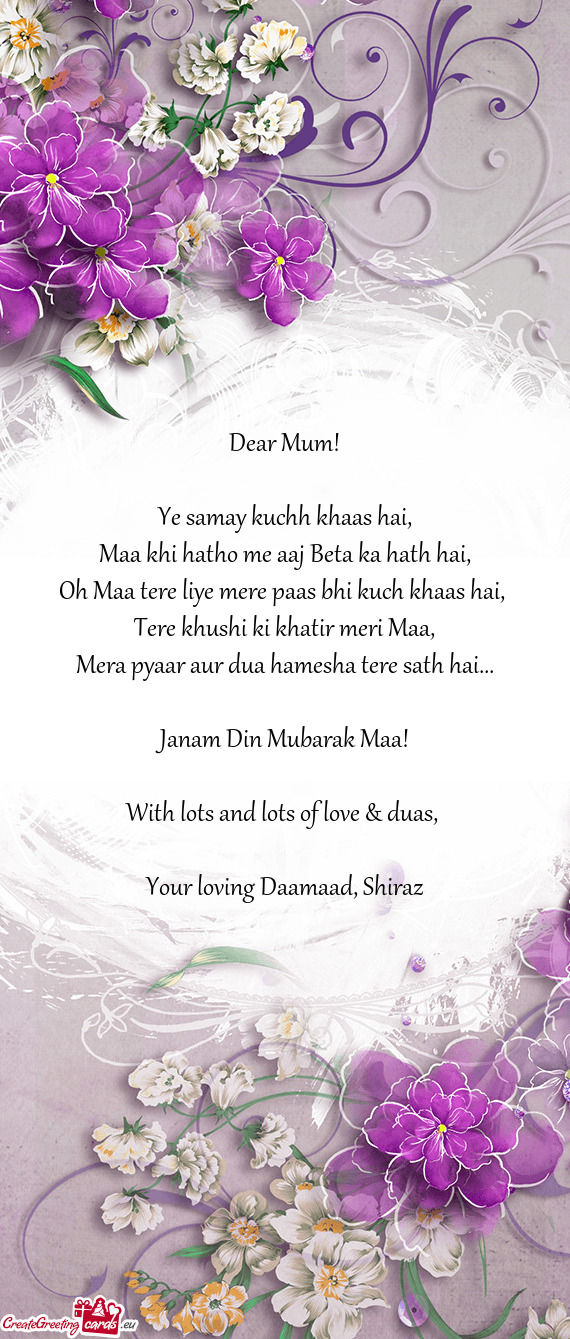 Dear Mum!
Ye samay kuchh khaas hai,
Maa khi hatho me aaj Beta ka hath hai,
Oh Maa tere liye mere paas bhi kuch khaas hai,
Tere khushi ki khatir meri Maa,
Mera pyaar aur dua hamesha tere sath hai...
Janam Din Mubarak Maa!
With lots and lots of love & duas,
Your loving Daamaad, Shiraz
CreateGreeting cards .eu